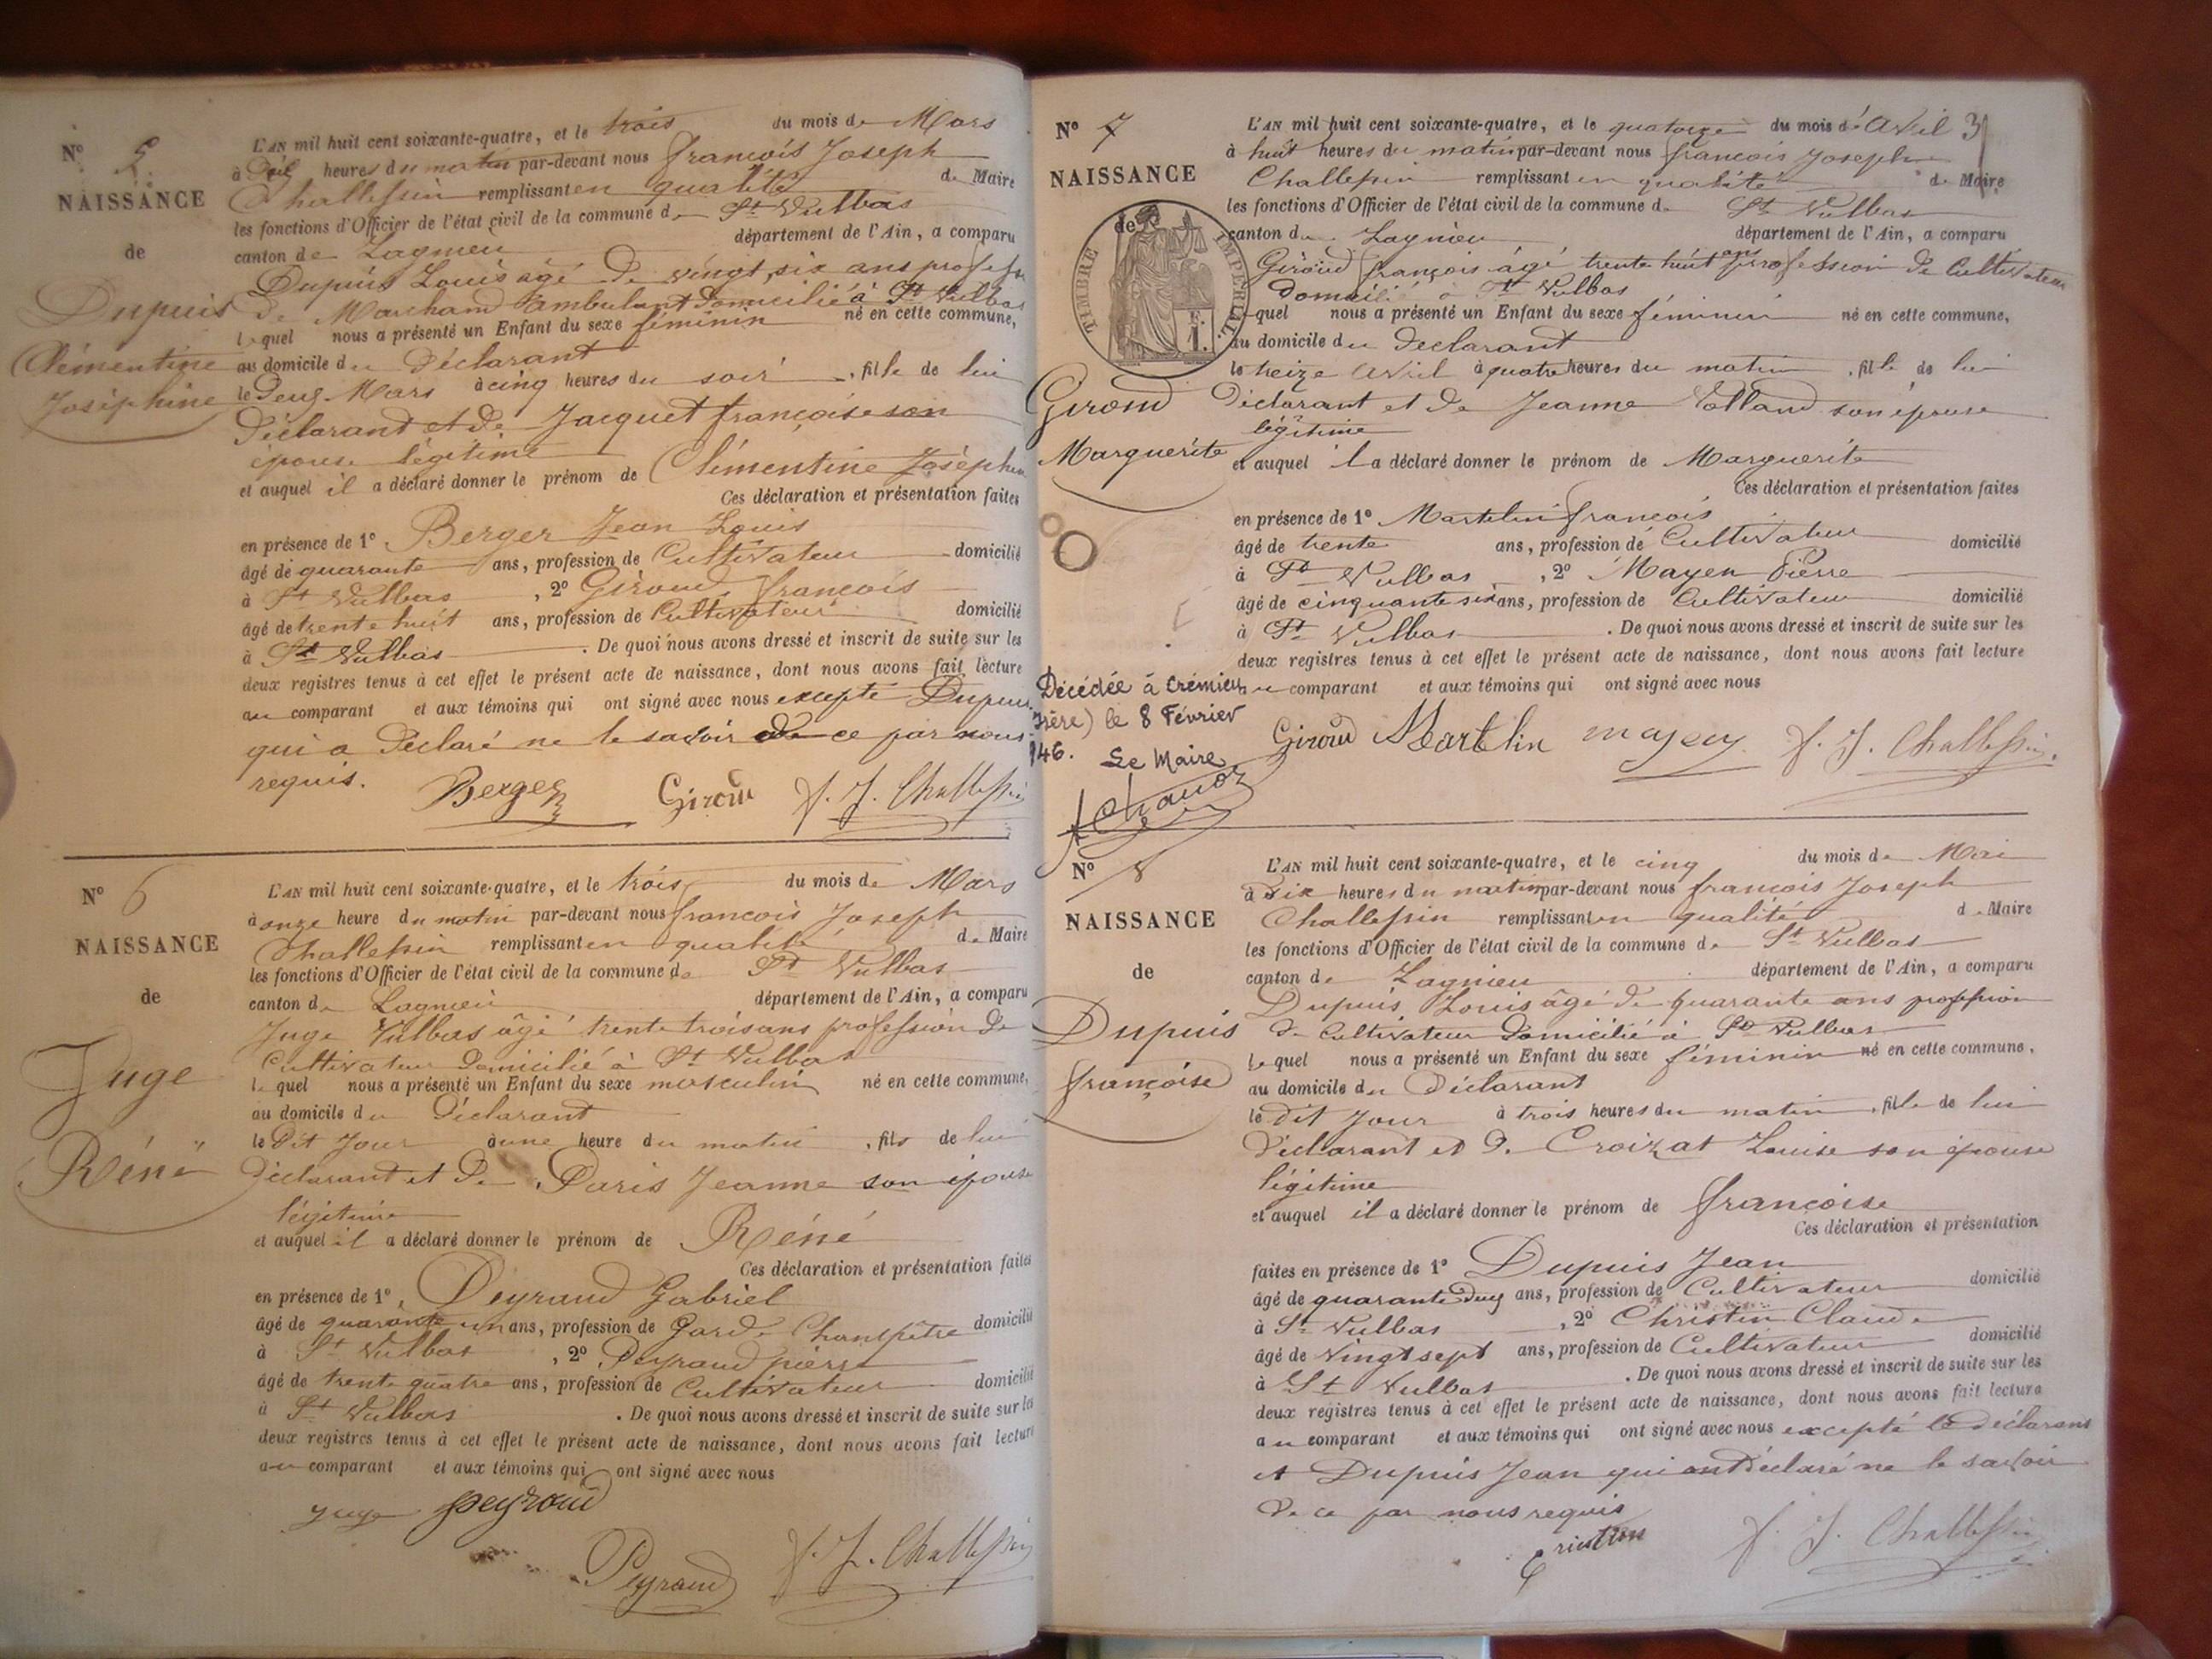 N° 5.
NAISSANCE
de
Dupuis
Clémentine
Joséphine
L'AN mil huit cent soixante-quatre, et le trois du mois de Mars
à dix heures du matin par-devant nous françois Joseph
Challessin remplissant en qualité de Maire
les fonctions d'Officier de l'état civil de la commune de St Vulbas
canton de Lagnieu département de l'Ain, a comparu
Dupuis Louis âgé de vingt six ans profession
de Marchand ambulant domicilié à St Vulbas
lequel nous a présenté un Enfant du sexe féminin né en cette commune,
au domicile du Déclarant
le Deux Mars à cinq heures du soir, fille de lui
Déclarant et de Jacquet françoise son
épouse légitime
et auquel il a déclaré donner le prénom de Clémentine Joséphine
Ces déclaration et présentation faites
en présence de 1° Berger Jean Louis
âgé de quarante ans, profession de Cultivateur domicilié
à St Vulbas, 2° Giroud françois
âgé de trente huit ans, profession de Cultivateur domicilié
à St Vulbas. De quoi nous avons dressé et inscrit de suite sur les
deux registres tenus à cet effet le présent acte de naissance, dont nous avons fait lecture
au comparant et aux témoins qui ont signé avec nous excepté Dupuis
qui a déclaré ne le savoir de ce par nous
requis.
Berger Giroud f. J. Challessin
N° 6
NAISSANCE
de
Juge
Réné
L'AN mil huit cent soixante-quatre, et le trois du mois de Mars
à onze heure du matin par-devant nous françois Joseph
Challessin remplissant en qualité de Maire
les fonctions d'Officier de l'état civil de la commune de St Vulbas
canton de Lagnieu département de l'Ain, a comparu
Juge Vulbas âgé trente trois ans profession de
Cultivateur domicilié à St Vulbas
lequel nous a présenté un Enfant du sexe masculin né en cette commune,
au domicile du Déclarant
le Dit Jour à une heure du matin, fils de lui
Déclarant et De Paris Jeanne son épouse
légitime
et auquel il a déclaré donner le prénom de Réné
Ces déclaration et présentation faites
en présence de 1°, Peyraud Gabriel
âgé de quarante un ans, profession de Garde Champêtre domicilié
à St Vulbas, 2° Peyraud pierre
âgé de trente quatre ans, profession de Cultivateur domicilié
à St Vulbas. De quoi nous avons dressé et inscrit de suite sur les
deux registres tenus à cet effet le présent acte de naissance, dont nous avons fait lecture
au comparant et aux témoins qui ont signé avec nous
juge peyraud
Peyraud f. J. Challessin
N° 7
NAISSANCE
de
TIMBRE IMPERIAL
Giroud
Marguerite
Décédée à Crémieu
(Isère) le 8 Février
1946.
Le Maire
L'AN mil huit cent soixante-quatre, et le quatorze du mois d'Avril 3
à huit heures du matin par-devant nous françois Joseph
Challessin remplissant en qualité de Maire
les fonctions d'Officier de l'état civil de la commune de St Vulbas
canton de Lagnieu département de l'Ain, a comparu
Giroud françois âgé trente huit ans profession de Cultivateur
domicilié à St Vulbas
lequel nous a présenté un Enfant du sexe féminin né en cette commune,
au domicile du declarant
le treize Avril à quatre heures du matin, fille de lui
Déclarant et de Jeanne Volland son épouse
légitime
et auquel il a déclaré donner le prénom de Marguerite
Ces déclaration et présentation faites
en présence de 1° Martelin françois
âgé de trente ans, profession de Cultivateur domicilié
à St Vulbas, 2° Mayen Pierre
âgé de cinquante six ans, profession de Cultivateur domicilié
à St Vulbas. De quoi nous avons dressé et inscrit de suite sur les
deux registres tenus à cet effet le présent acte de naissance, dont nous avons fait lecture
au comparant et aux témoins qui ont signé avec nous
Giroud Martlin mayen f. J. Challessin.
N° 8
NAISSANCE
de
Dupuis
françoise
L'AN mil huit cent soixante-quatre, et le cinq du mois de Mai
à six heures du matin par-devant nous françois Joseph
Challessin remplissant en qualité de Maire
les fonctions d'Officier de l'état civil de la commune de St Vulbas
canton de Lagnieu département de l'Ain, a comparu
Dupuis Louis âgé de quarante ans profession
de Cultivateur domicilié à St Vulbas
lequel nous a présenté un Enfant du sexe féminin né en cette commune,
au domicile du Déclarant
le dit Jour à trois heures du matin, fille de lui
Déclarant et de Croizat Louise son épouse
légitime
et auquel il a déclaré donner le prénom de françoise
Ces déclaration et présentation
faites en présence de 1° Dupuis Jean
âgé de quarante Deux ans, profession de Cultivateur domicilié
à St Vulbas, 2° Christin Claude
âgé de Vingt sept ans, profession de Cultivateur domicilié
à St Vulbas. De quoi nous avons dressé et inscrit de suite sur les
deux registres tenus à cet effet le présent acte de naissance, dont nous avons fait lecture
au comparant et aux témoins qui ont signé avec nous excepté le déclarant
et Dupuis Jean qui ont déclaré ne le savoir
De ce par nous requis
f. J. Challessin